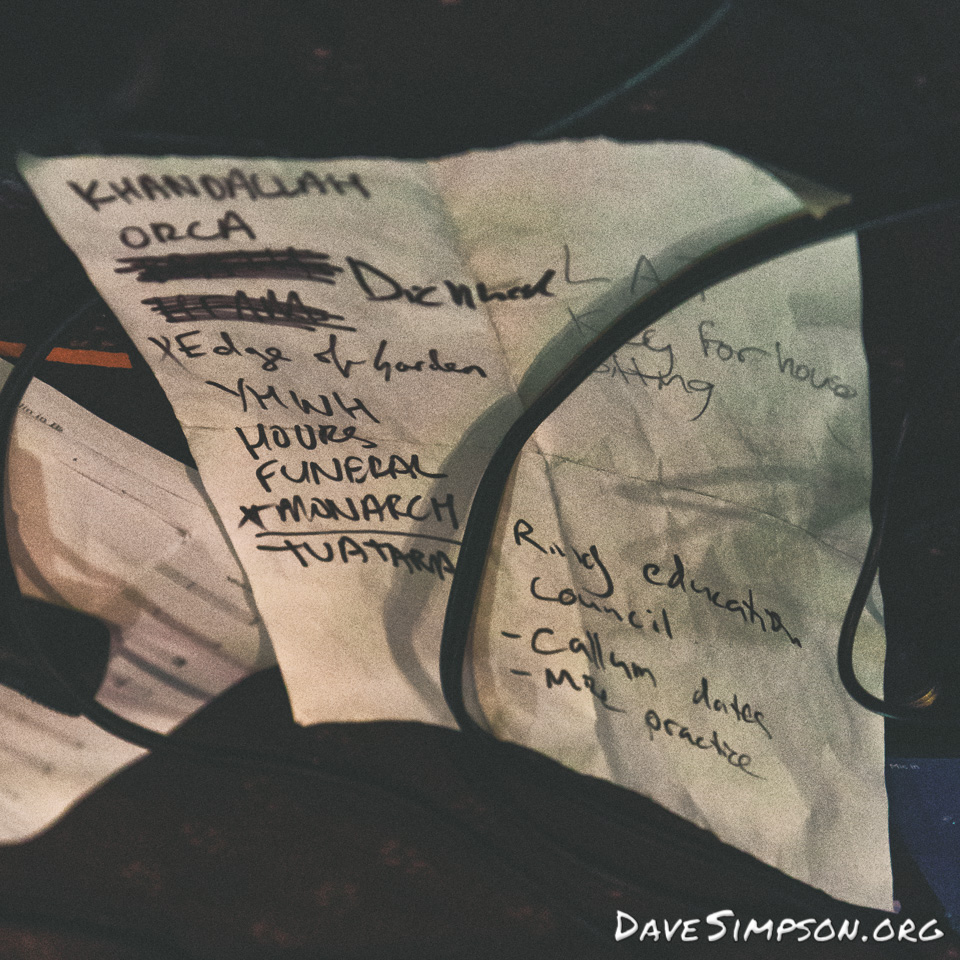 KHANDALLAH
ORCA
XEdge of Garden
YHWH
HOURS
FUNERAL
*MONARCH
TUATARA
L A
Key for house
sitting
Ring education
Council
- Callum dates
- practice
DAVESIMPSON.ORG